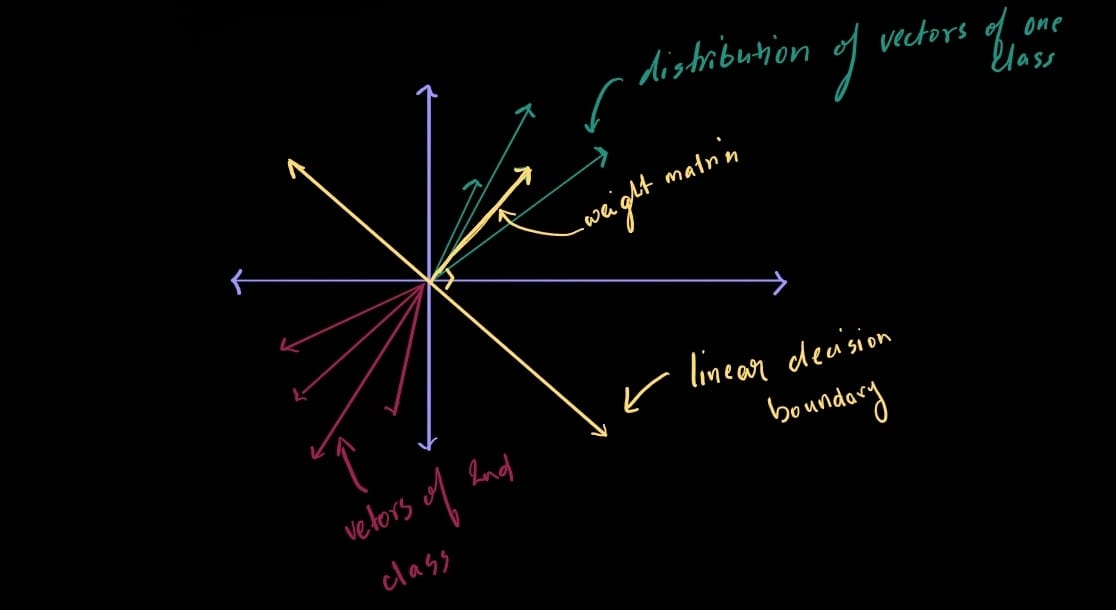 distribution of vectors of one
class
weight matrix
linear decision
boundary
vetors of 2nd
class